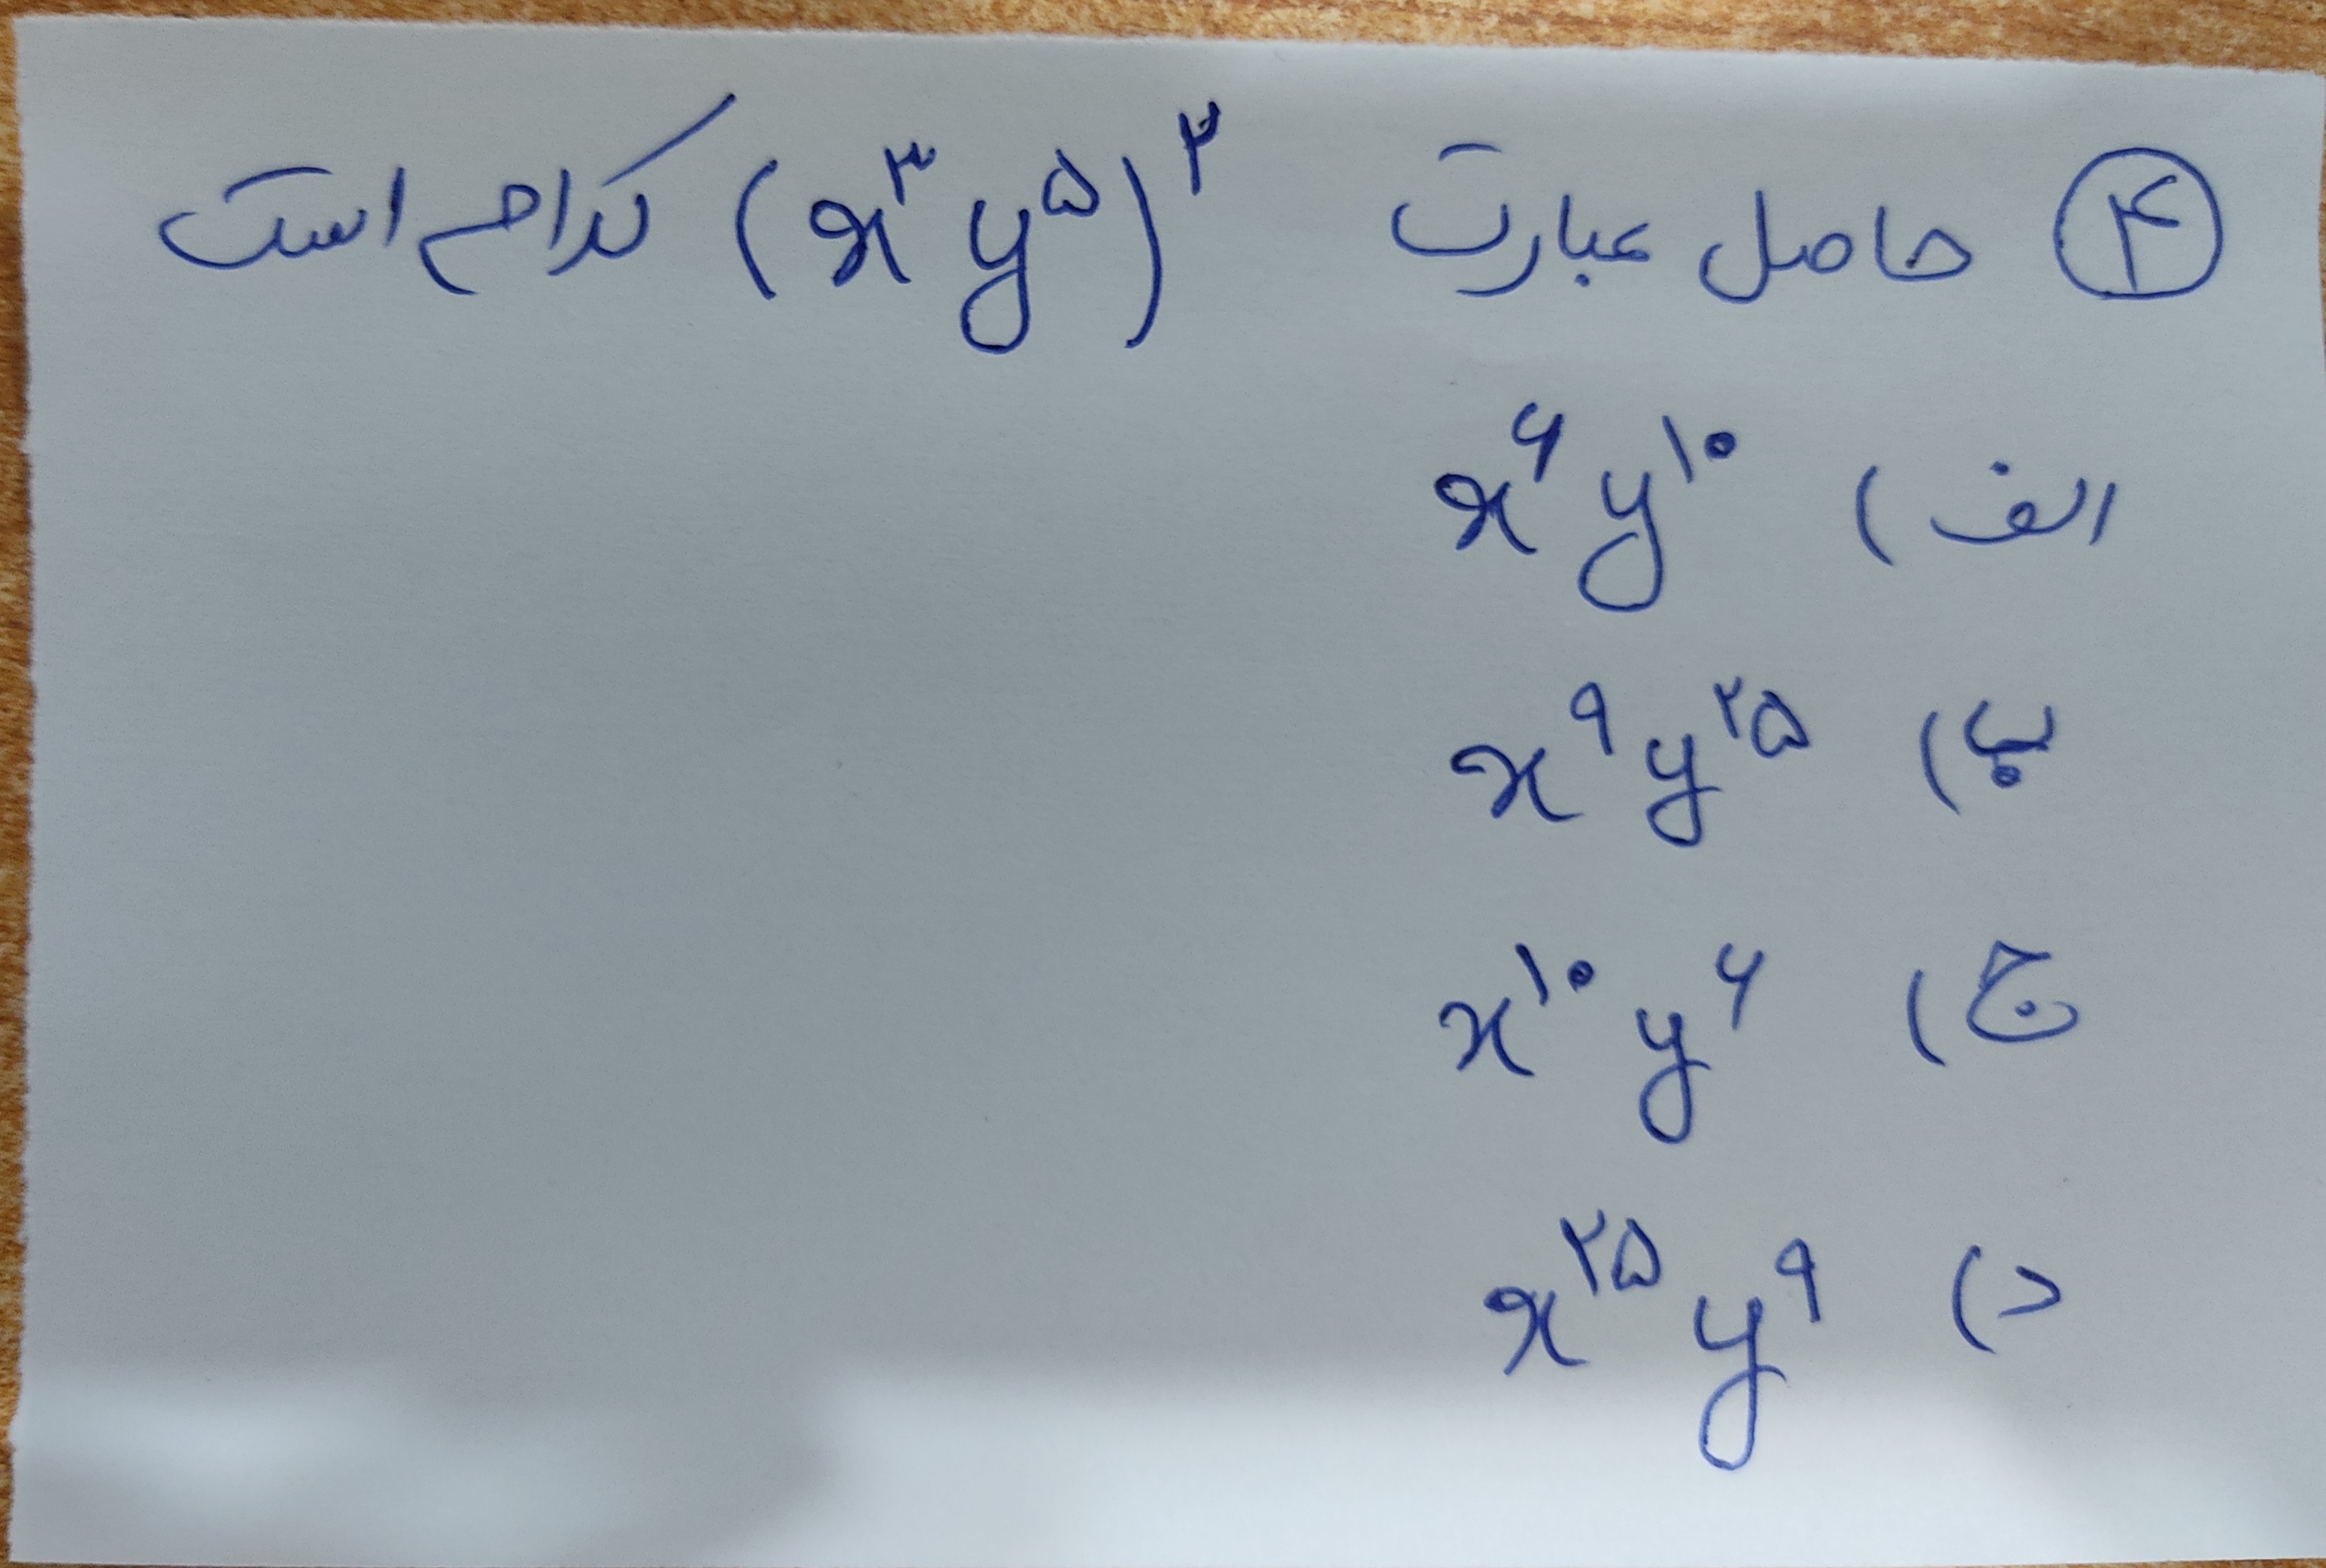 ۴ حاصل عبارت (x^۳ y^۵)^۲ کدام است
الف) x^۶ y^۱۰
ب) x^۹ y^۲۵
ج) x^۱۰ y^۶
د) x^۲۵ y^۹